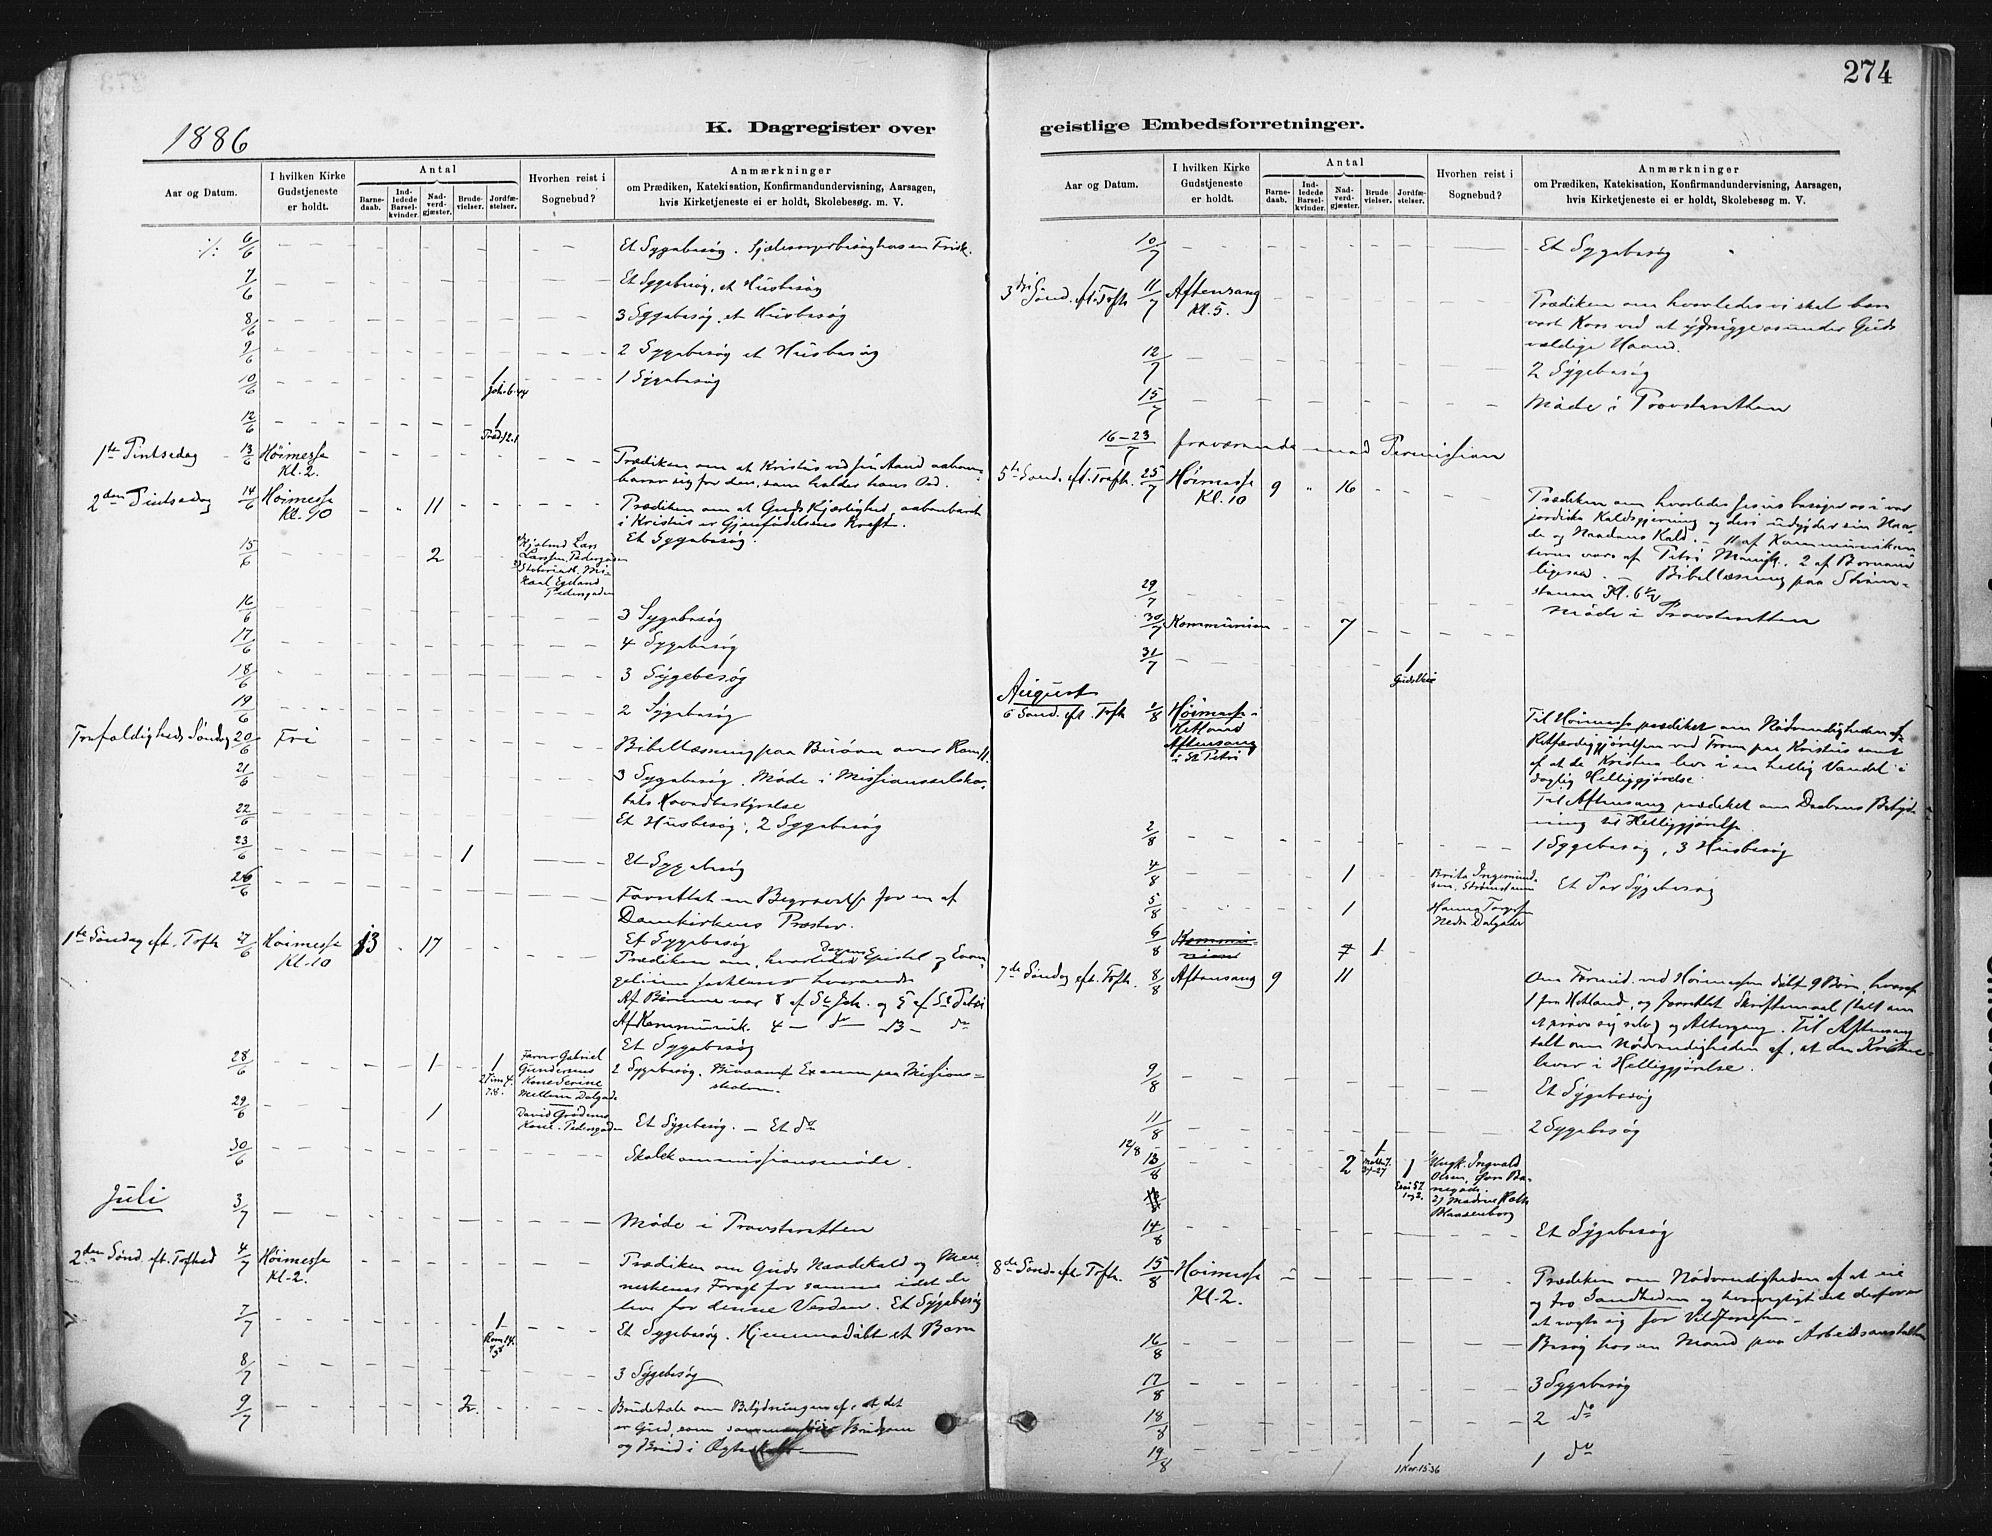 274
1886
K. Dagregister over
geistlige Embedsforretninger.
Aar og Datum.
I hvilken Kirke
Gudstjeneste
er holdt.
Antal
Barne-
daab.
Ind-
ledede
Barsel-
kvinder.
Nad-
verd-
gjæster.
Brude-
vielser.
Jordfæ-
stelser.
Hvorhen reist i
Sognebud?
Anmærkninger
om Prædiken, Katekisation, Konfirmandundervisning, Aarsagen,
hvis Kirketjeneste ei er holdt, Skolebesøg. m. V.
6/6 Et Sygebesøg. Sjælesorgerbesøg hos en Frisk.
7/6 Et Sygebesøg, et Husbesøg
8/6 3 Sygebesøg, et Husbesøg
9/6 2 Sygebesøg et Husbesøg
10/6 1 Joh. 6.44 1 Sygebesøg
12/6 1 Præd. 12.1
1ste Pintsedag 13/6 Høimesse Prædiken om at Kristus ved sin Aand aaben-
Kl. 2. barer sig for den, som holder hans Ord.
2den Pintsedag 14/6 Høimesse 11 Prædiken om at Guds Kjærlighed aabenbaret
Kl. 10 i Kristus er Gjenfødelsens Kraft.
Et Sygebesøg.
15/6 2 Lars
Larssen Pedersgaden
Egeland
Pedersgaden
16/6 3 Sygebesøg
17/6 4 Sygebesøg
18/6 3 Sygebesøg
19/6 2 Sygebesøg
Trefoldigheds Søndag 20/6 Fri Bibellæsning paa over Rom
21/6 3 Sygebesøg. Møde i Missionsselska-
bets Hovedbestyrelse
22/6 Et Husbesøg, 2 Sygebesøg
23/6 1 Et Sygebesøg
26/6 Forrettet en Begravelse for en af
Domkirkens Præster.
Et Sygebesøg
1ste Søndag eft. Trfh 27/6 Høimesse 13 17 Prædiken om, hvorledes Dagens Epistel og Evan-
Kl. 10 gelium forklarer hverandre
Af Børnene var 8 af St. Joh. og 5 af St. Petri
Af Kommunik. 4 — do — 13 — do
Et Sygebesøg
28/6 1 1 2 Tim 4. 7.8. Farver Gabriel
Gundersens
Kone Serine
Mellem Dalgade
2 Sygebesøg. Examen paa Missions-
skolen.
29/6 1 David
Kone. Pedersgaden Et Sygebesøg. — Et do
30/6 Skolekommissionsmøde.
Juli
3/7 Møde i Provsteretten
2den Sønd. eft. Trefhed 4/7 Høimesse Prædiken om Guds Naadekald og Men-
Kl. 2. neskenes Foragt for samme idet de
lever for denne Verden. Et Sygebesøg
7/7 1 Rom 14. 7.8 Et Sygebesøg. Hjemmedøbt et Barn
8/7 3 Sygebesøg
9/7 2. Brudetale om Betydningen af, at det
er Gud, som Brudgom
og Brud i Ægteskab

Aar og Datum.
I hvilken Kirke
Gudstjeneste
er holdt.
Antal
Barne-
daab.
Ind-
ledede
Barsel-
kvinder.
Nad-
verd-
gjæster.
Brude
vielser.
Jordfæ-
stelser.
Hvorhen reist i
Sognebud?
Anmærkninger
om Prædiken, Katekisation, Konfirmandundervisning, Aarsagen,
hvis Kirketjeneste ei er holdt, Skolebesøg m. V.
10/7 Et Sygebesøg
3die Sønd. eft. Trfh. 11/7 Aftensang Prædiken om hvorledes vi skal bære
Kl. 5. vort Kors ved at ydmyge os under Guds
vældige Haand.
12/7 2 Sygebesøg
15/7 Møde i Provsteretten
16–23/7 fraværende med Permission
5te Sønd. eft. Trefh. 25/7 Høimesse 9 " 16 Prædiken om hvorledes Jesus besøger os i vor
Kl. 10 jordiske Kaldsgjerning og deri indbyder sin Naa-
de og Naadens Kald. — 11 af Kommunikan-
terne vare af Petri Menigh. 2 af
Bibellæsning paa Strøm-
stenen Kl. 6 1/2
29/7 Møde i Provsteretten
30/7 Kommunion 7
31/7 1
August
6 Sønd. eft. Trfh 1/8 Høimesse i Til Høimesse prædiket om Nødvendigheden af
Hetland Retfærdiggjørelsen ved Troen paa Kristus samt
Aftensang af at de Kristne lever i en hellig Vandel i
i St Petri daglig Helliggjørelse.
Til Aftensang prædiket om Daabens Betyd-
ning til Helliggjørelse
2/8 1 Sygebesøg, 3 Husbesøg
4/8 1 Brita Ingemund-
sen, Strømstenen Et Par Sygebesøg
5/8 1 Hanna
Nedre Dalgade
6/8 Kommu-
nion 7 1
7de Søndag eft. Trfh. 8/8 Aftensang 9 11 Om Formid. ved Høimessen døbt 9 Børn, hvoraf
1 fra Hetland, og forrettet Skriftemaal (talt om
at prøve sig selv) og Altergang. Til Aftensang
talt om Nødvendigheden af, at den Kristne
lever i Helliggjørelse.
9/8 Et Sygebesøg
11/8 2 Sygebesøg
12/8 1
13/8 2 1 Ungk. Ingvald
Olsen, Øvre Ba-
negade
2)
Blaasenborg
14/8 Et Sygebesøg
8de Sønd. eft Trfh. 15/8 Høimesse Prædiken om Nødvendigheden af at eie
Kl. 2. og tro Sandheden og hvor vigtigt det derfor er
at vogte sig for Vildfarelsen.
16/8 Besøg hos en Mand paa Arbeidsanstalten
17/8 3 Sygebesøg
18/8 2 do
19/8 1 1 Kor. 15.36 1 do